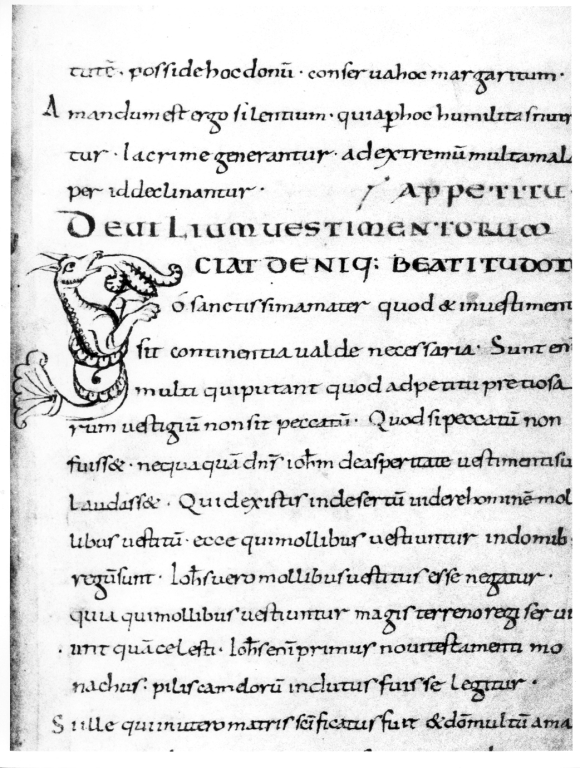 tutē · possidehocdonū · conseruahoc margaritum ·
Amandum est ergo silentium · quia phoc humilitas nutr
tur · lacrime generantur · adextremū multamala
per id declinantur · APPETITU
DE UILIUM UESTIMENTORUM
SCIAT DENIQ: BEATITUDOT
ō sanctissima mater quod & inuestiment
sit continentia ualde necessaria · Sunt en
multi quiputant quod adpetitu pretiosa
rum uestigiū non sit peccatū · Quod si peccatū non
fuiss& · nequaquā dn̄s ioh̄m deasperitate uestimentisu
laudass& · Quid existis indesertū uidere hominē mol
libus uestitū · ecce qui mollibus uestiuntur indomib
regū sunt · Ioh̄s uero mollibus uestitus esse negatur ·
quia qui mollibus uestiuntur magis terreno regi serui
unt quā celesti · Ioh̄s enī primus noui testamenti mo
nachus · pilis camelorū indutus fuisse legitur ·
Sille qui inutero matris sc̄ificatus fuit & dōmultū ama